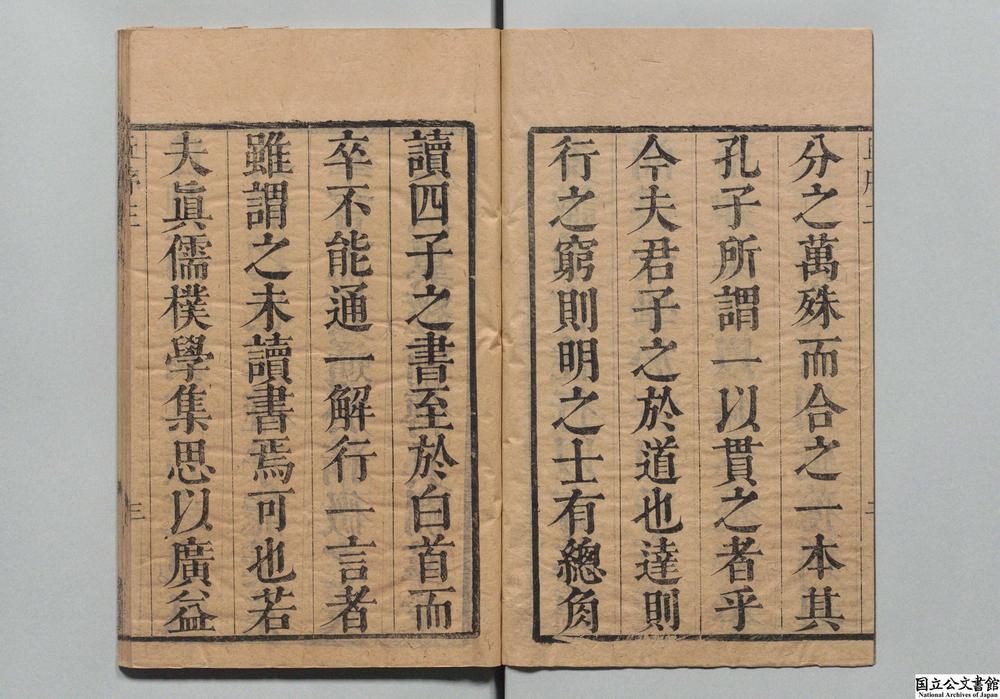 分之萬殊而合之一本其
孔子所謂一以貫之者乎
今夫君子之於道也達則
行之窮則明之士有總角
讀四子之書至於白首而
卒不能通一解行一言者
雖謂之未讀書焉可也若
夫眞儒樸學集思以廣益
三
国立公文書館
National Archives of Japan